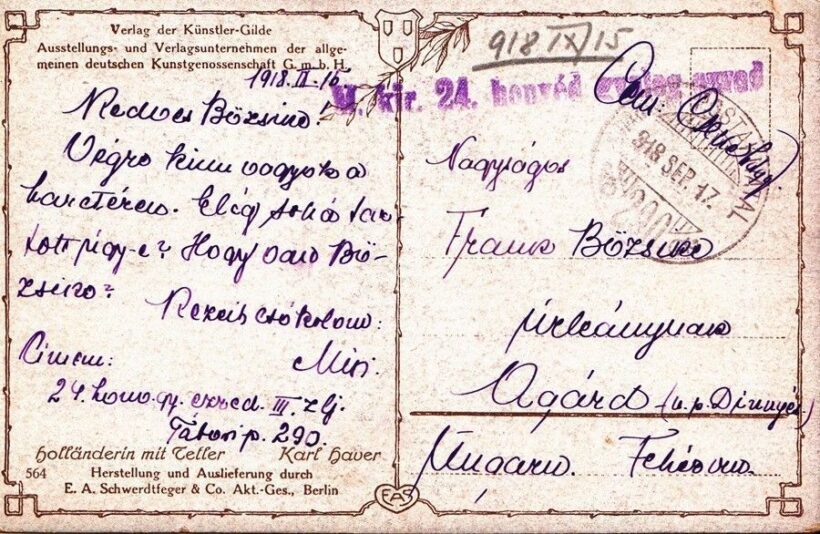 Verlag der Künstler-Gilde
Ausstellungs- und Verlagsunternehmen der allge-
meinen deutschen Kunstgenossenschaft G. m. b. H.
918 IX/15
M. kir. 24. honvéd gyalog ezred
1918. IX. 15
Kedves Bözsike!
Végre kinn vagyok a
harctéren. Elég soká tar-
tott ugy-e? Hogy van Bö-
zsike?
Kezeit csókolom:
Misi.
Cimem:
24. honv. gy. ezred. III. zlj.
Tábori p. 290.
Nagyságos
Frank Bözsike
úrleánynak
Agárd (u. p. Dinnyés)
Ungarn. Fehérvm.
POSTAHIVATAL
918 SEP. 17.
Holländerin mit Teller Karl Haver
564 Herstellung und Auslieferung durch
E. A. Schwerdtfeger & Co. Akt.-Ges., Berlin
EAS